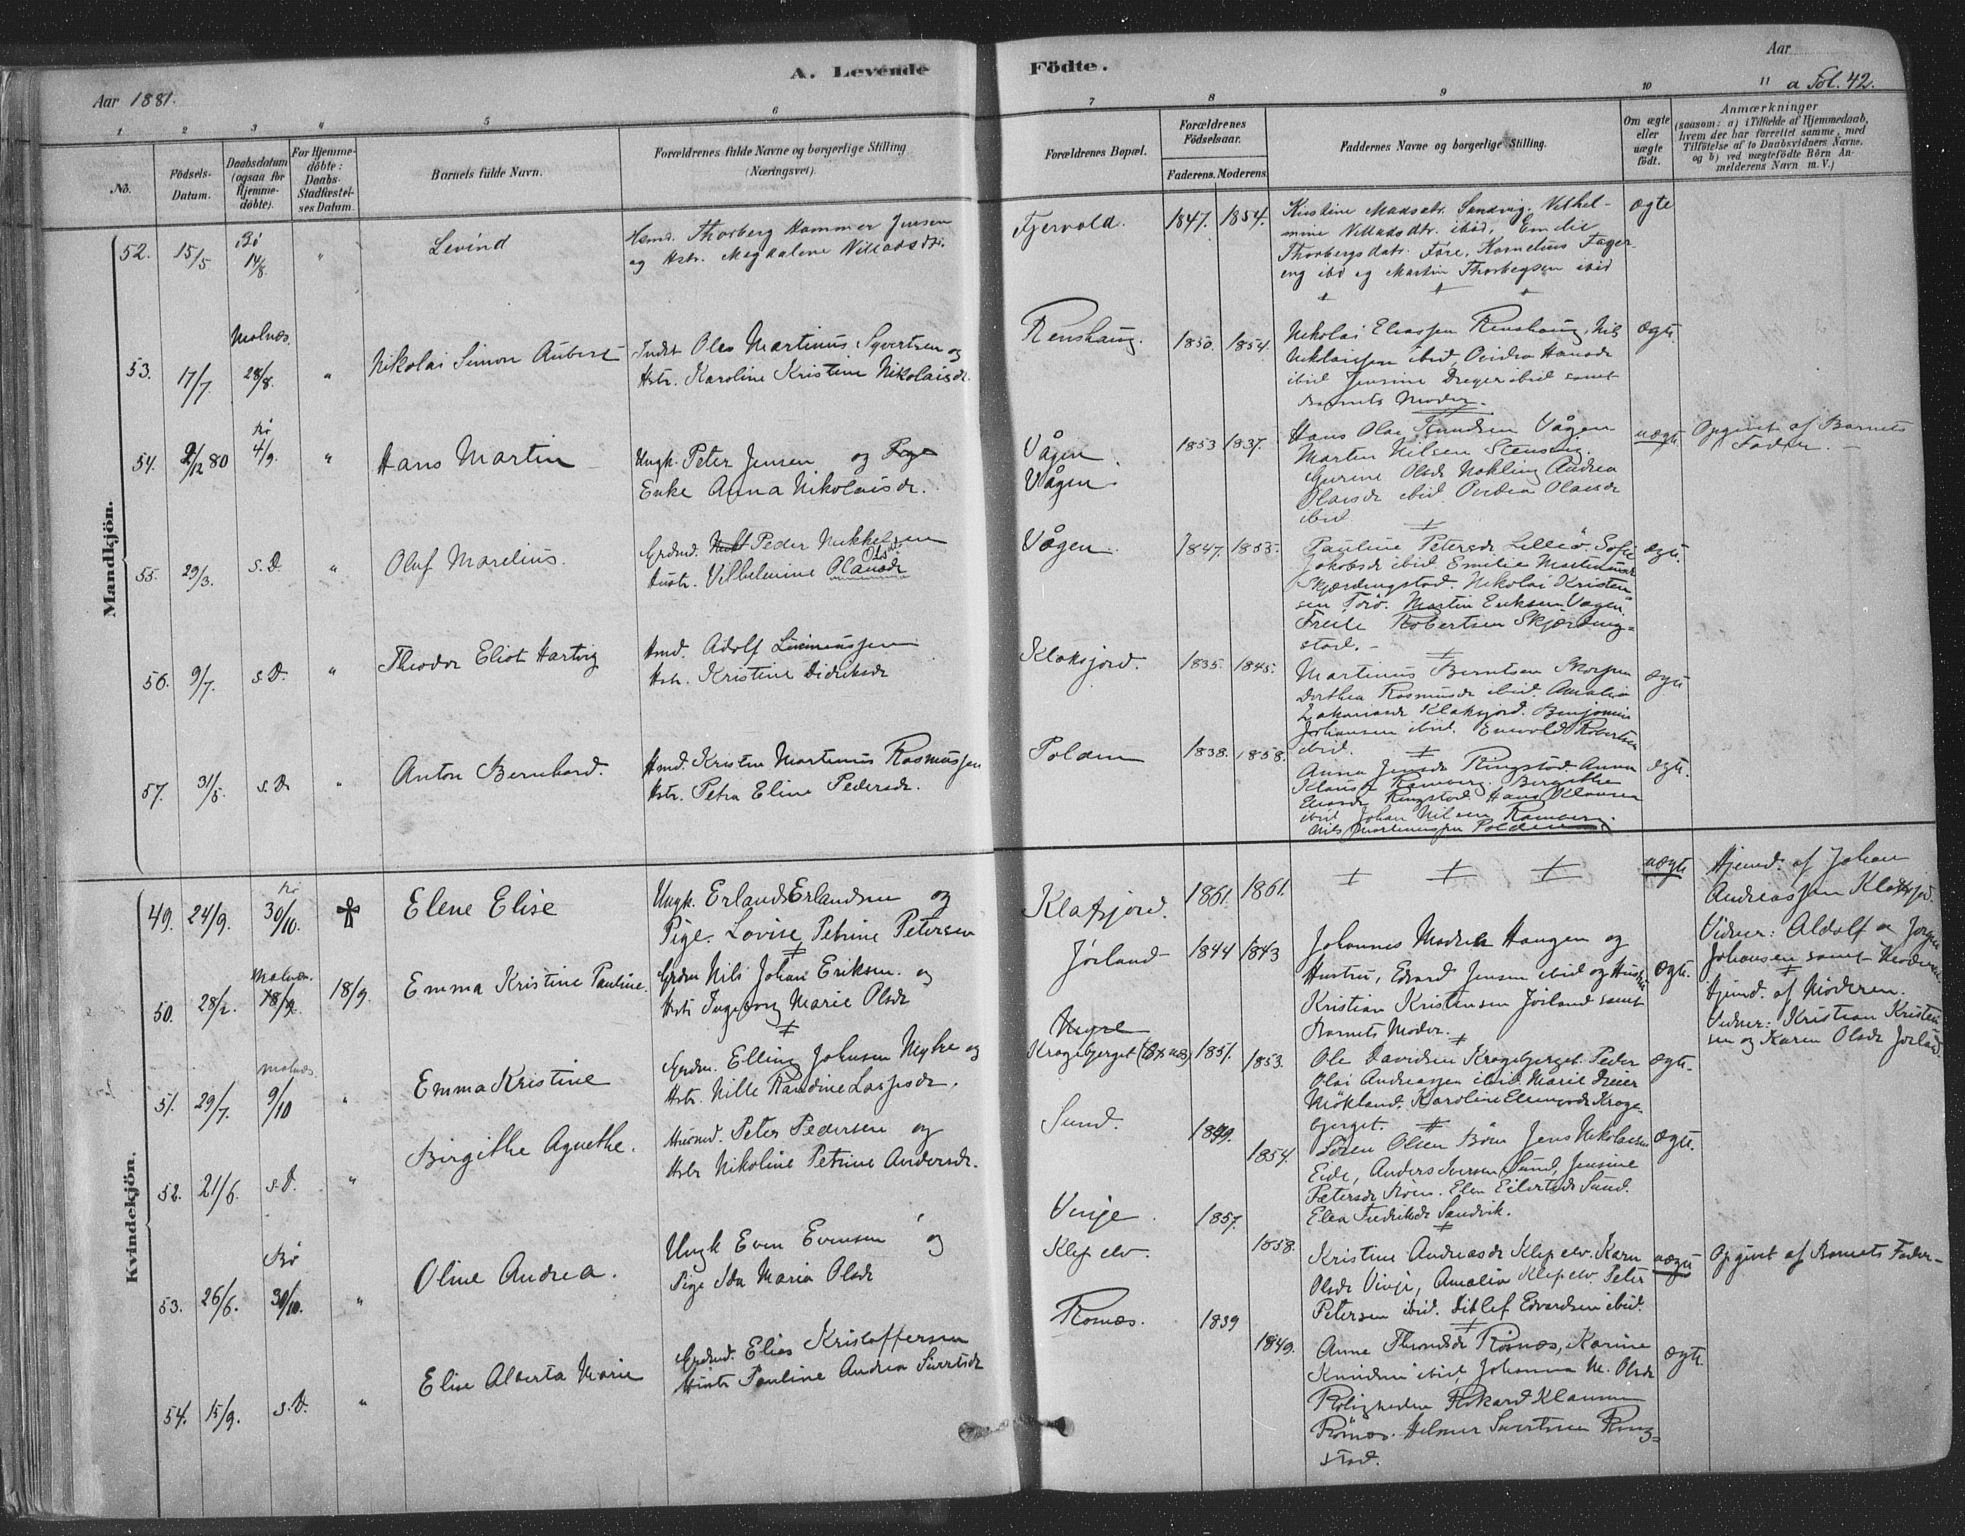 A. Levende Födte.
Aar 1881.
Aar
a Fol. 42.
1 2 3 4 5 6 7 8 9 10 11
No.
Födsels-Datum.
Daabsdatum (ogsaa for Hjemmedöbte).
For Hjemmedöbte: Daabs-Stadfæstelses Datum.
Barnets fulde Navn.
Forældrenes fulde Navne og borgerlige Stilling (Næringsvei).
Forældrenes Bopæl.
Forældrenes Födselsaar.
Faderens. Moderens.
Faddernes Navne og borgerlige Stilling.
Om ægte eller uægte födt.
Anmærkninger (saasom: a) i Tilfælde af Hjemmedaab, hvem der har forrettet samme, med Tilföielse af to Daabsvidners Navne, og b) ved uægtefödte Börn Anmelderens Navn m. V.)
Mandkjön.
52. 15/5 Bø 14/8. " Levind
Hsmd. Thorberg Hammer Jensen
og Hstr. Magdalene Villadsdtr.
Fjervold. 1847. 1854.
Kristine Madsdtr. Sandvig. Vilhel-
mine Villadsdtr. ibid, Emilie
Thorbergsdatr. Føre, Kornelius Fager-
eng ibd og Martin Thorbegsen ibid
ægte
53. 17/7. Malnæs. 28/8. " Nikolai Simon Aubert
Indst Oles Martinus Syvertsen og
Hstr. Karoline Kristine Nikolaisdr.
Renshaug. 1850. 1854.
Nikolai Eliassen Renshaug, Nils
Niklaissen ibid, Ovidia Hansdr
ibid Jensine Dreyer ibid samt
Barnets Moder.
ægte.
54. 2/12 80 Bø 4/9. " Hans Martin
Ungk. Peter Jensen og Pige
Enke Anna Nikolaisdr.
Vågen.
Vågen. 1853 1837.
Hans Olai Knudsen Vågen
Martin Nilsen Stensvig.
Gurine Olsdr Møkling Andrea
Olaisdr ibid. Ovidia Olaisdr
ibid.
uægte Opgivet af Barnets
Fader. —
55. 29/3. s.D. " Oluf Marelius.
Grdmd. Peder Mikkelsen
Hustr. Vilhelmine Olausdr Olsdr
Vågen. 1847. 1853.
Pauline Petersdr Lilleö. Sofie
Jakobsdr ibid Emilie Martinusdr
Skjærdingstad. Nikolai Kristen-
sen Torö. Martin Eriksen Vagen.
Robertsen Skjærding-
stad. —
ægte.
56. 9/7. s.D. " Theodor Eliot Hartvig
Hmd. Adolf
Hstr. Kristine Didriksdr
Klaksjord. 1835. 1845.
Martinus Berntsen
Dorthea Rasmusdr ibid. Amalia
Zakariasdr Klaksjord. Benjamin
Johansen ibid. Enevold Robertsen
ibid.
ægte
57. 31/5. s.D. " Anton Bernhard.
Hmd. Kristen Martinus Rasmussen
Hstr. Petra Eline Pedersdr.
Polden 1838. 1858.
Anna Jensdr Ringstad. Anna
Klausdr Ramberg. Birgithe
Eliasdr Ringstad. Hans Klausen
ibid Johan Nilsen Ramberg.
Nils Martinussen Polden
ægte.
Kvindekjön.
49. 24/9. Bø 30/10. Elene Elise
Ungk. Erland Erlandsen og
Pige. Lovise Petrine Petersen
Klaksjord. 1861. 1861.
uægte Hjemd. af Johan
Andreassen Klaksjd.
Vidner: Aldolf a Jørgen
Johansen samt Moderen
50. 28/2. Malnæs. 18/9. 18/9. Emma Kristine Pauline.
Grdm Nils Johan Eriksen. og
Hstr Ingeborg Marie Olsdr
Jörland 1844 1843
Johannes Madsen Haugen og
Hustru, Edvard Jensen ibid og Hustru
Kristian Kristensen Jörland samt
Barnets Moder.
ægte. Hjemd. af Moderen.
Vidner: Kristian Kristen-
sen og Karen Olsdr Jörland
51. 29/7. Malnæs. 9/10 " Emma Kristine
Grdm. Elling Johnsen Myhre og
Hstr. Nille Randine Larsdr.
Myre
Kragebjerget 1851. 1853.
Ole Davidsen Kragebjerget. Peder
Olai Andreassen ibid. Marie Dreier
Mökland. Karoline Krage-
bjerget.
ægte.
52. 21/6. s.D. " Birgithe Agnethe.
Husmd. Peter Pedersen og
Hstr Nikoline Petrine Andersdr.
Sund. 1849. 1854.
Søren Olsen Böen Jens Nikolaisen
Eide, Anders Iversen Sund, Jensine
Petersdr Böen. Elen Eilertsdr Sund.
Elea Fredriksdr Sandvik.
ægte.
53. 26/6. Bø 30/10. " Oline Andrea.
Ungk Even Evensen og
Pige Ida Maria Olsdr
Vinje. 1857.
Klepelv. 1858.
Kristine Andreasdr Klepelv. Karn
Olsdr Vinje, Amalia Klepelv. Peter
Petersen ibid. Ditlef Edvardsen ibid.
uægte Opgivet af Barnets Fader—
54. 15/9. s.D. " Elise Alberta Marie
Grdmd. Elias Kristoffersen
Hustr Pauline Andrea Sivertsdr
Romæs. 1839 1849.
Anne Romæs, Karine
Knudsen ibid, Johanna M. Olsdr
Roligheden Rikard Klausen
Römæs. Helmer Sivertsen Ring-
stad.
ægte.